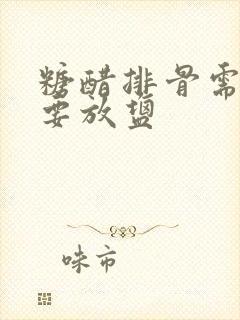 糖醋排骨需
要放盐
味市